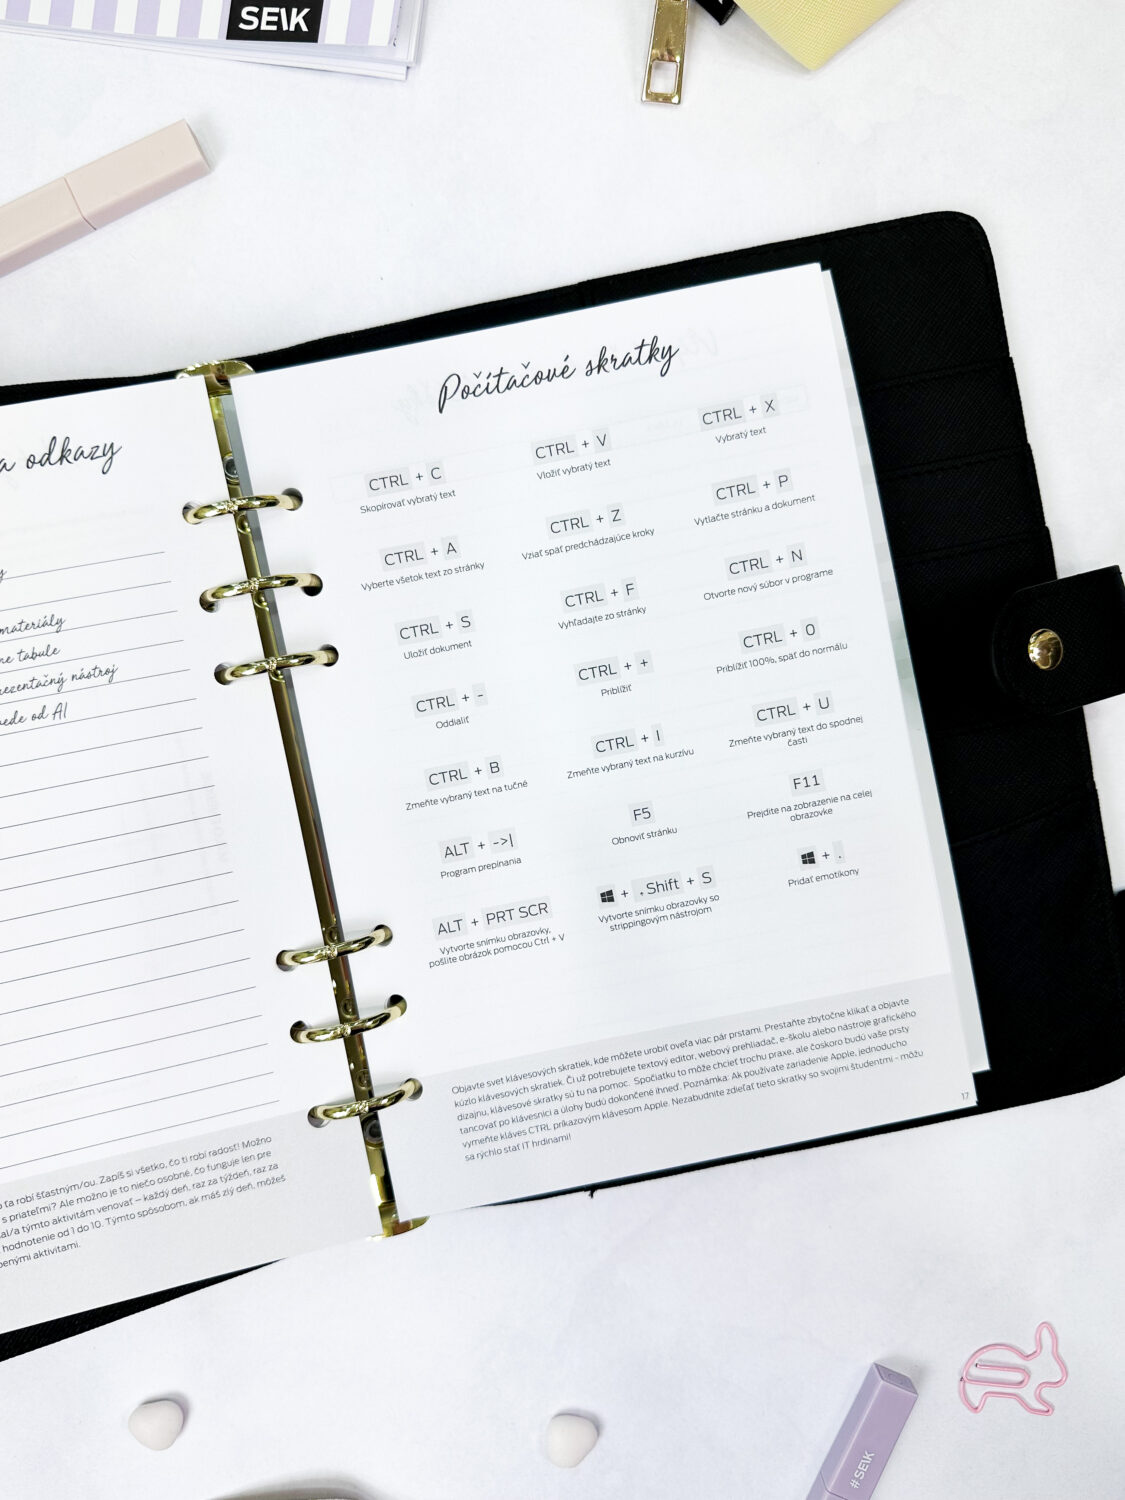 SE\K
a odkazy
materiály
ne tabule
rezentačný nástroj
vede od AI
o ťa robí šťastným/ou. Zapíš si všetko, čo ti robí radosť! Možno
s priateľmi? Ale možno je to niečo osobné, čo funguje len pre
al/a týmto aktivitám venovať – každý deň, raz za týždeň, raz za
hodnotenie od 1 do 10. Týmto spôsobom, ak máš zlý deň, môžeš
benými aktivitami.
Počítačové skratky
CTRL + C
Skopírovať vybratý text
CTRL + V
Vložiť vybratý text
CTRL + X
Vybratý text
CTRL + A
Vyberte všetok text zo stránky
CTRL + Z
Vziať späť predchádzajúce kroky
CTRL + P
Vytlačte stránku a dokument
CTRL + S
Uložiť dokument
CTRL + F
Vyhľadajte zo stránky
CTRL + N
Otvorte nový súbor v programe
CTRL + -
Oddialiť
CTRL + +
Priblížiť
CTRL + 0
Priblížiť 100%, späť do normálu
CTRL + B
Zmeňte vybraný text na tučné
CTRL + I
Zmeňte vybraný text na kurzívu
CTRL + U
Zmeňte vybraný text do spodnej
časti
ALT + ->|
Program prepínania
F5
Obnoviť stránku
F11
Prejdite na zobrazenie na celej
obrazovke
ALT + PRT SCR
Vytvorte snímku obrazovky,
pošlite obrázok pomocou Ctrl + V
+ Shift + S
Vytvorte snímku obrazovky so
strippingovým nástrojom
+ .
Pridať emotikony
Objavte svet klávesových skratiek, kde môžete urobiť oveľa viac pár prstami. Prestaňte zbytočne klikať a objavte
kúzlo klávesových skratiek. Či už potrebujete textový editor, webový prehliadač, e-školu alebo nástroje grafického
dizajnu, klávesové skratky sú tu na pomoc. Spočiatku to môže chcieť trochu praxe, ale čoskoro budú vaše prsty
tancovať po klávesnici a úlohy budú dokončené ihneď. Poznámka: Ak používate zariadenie Apple, jednoducho
vymeňte kláves CTRL príkazovým klávesom Apple. Nezabudnite zdieľať tieto skratky so svojimi študentmi - môžu
sa rýchlo stať IT hrdinami!
17
#SE\K